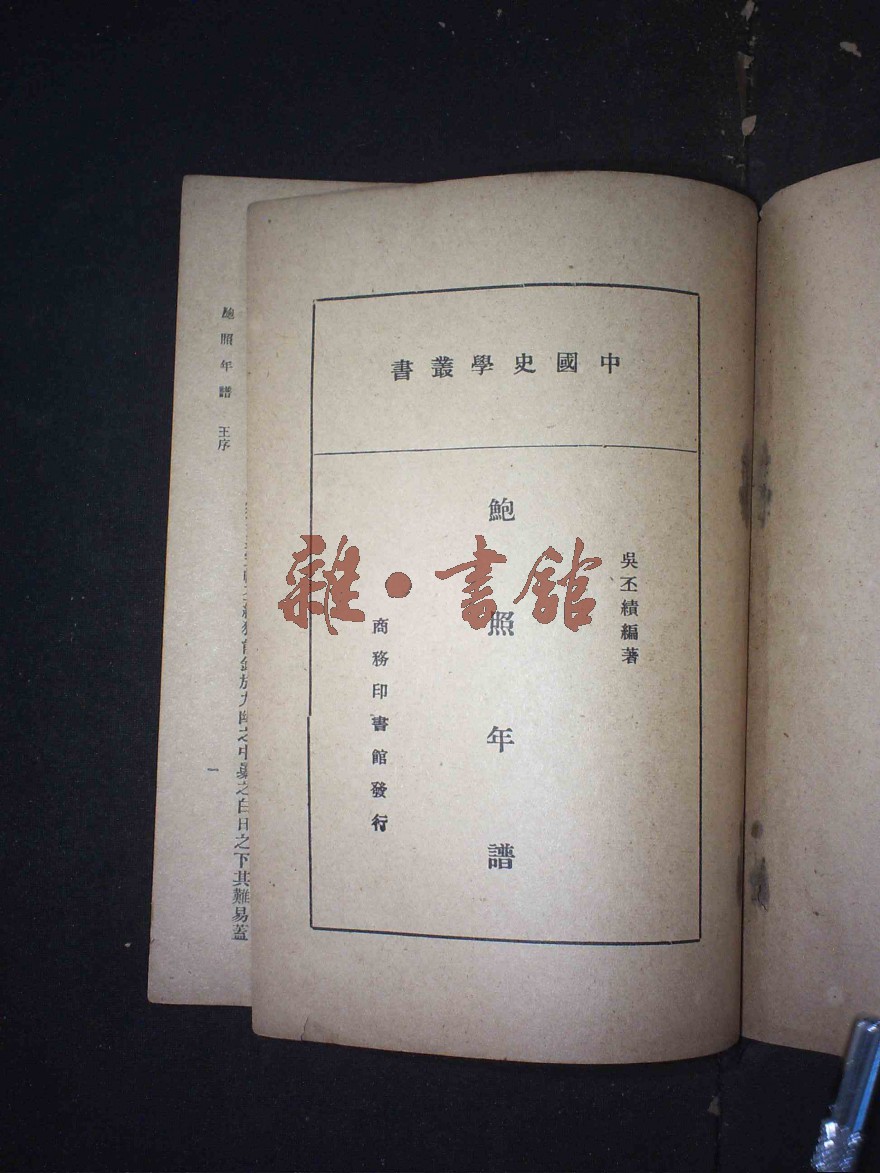 中國史學叢書
吳丕績編著
鮑照年譜
商務印書館發行
雜·書館
鮑照年譜 王序
一
之白日之下其難易蓋